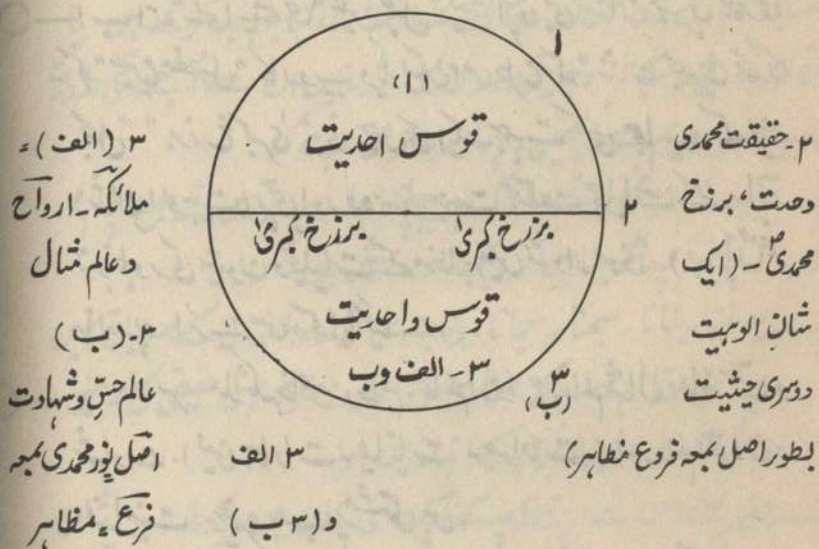 ۱
(۱)
قوس احدیت
۲
برزخ کبریٰ برزخ کبریٰ
قوس واحدیت
۳ - الف وب
۳
(ب)
۲۔ حقیقت محمدی
وحدت، برزخ
محمدیؐ ۔ (ایک
شانِ الوہیت
دوسری حیثیت
بطور اصل بمعہ فروع مظاہر)
۳ (الف) =
ملائکہ ۔ ارواح
و عالم مثال
۳۔ (ب)
عالم حسّ و شہادت
۳ الف اصل نورِ محمدی بمعہ
و (۳ ب) فرع = مظاہر